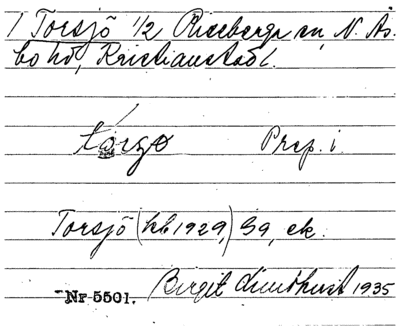 1 Torsjö 1/2 Riseberga sn N. Ås.
bo hd, Kristianstad l.
Prep. i
Torsjö (kb 1929,) Gg, ek.
Nr 5501. Birgit Lindkvist 1935